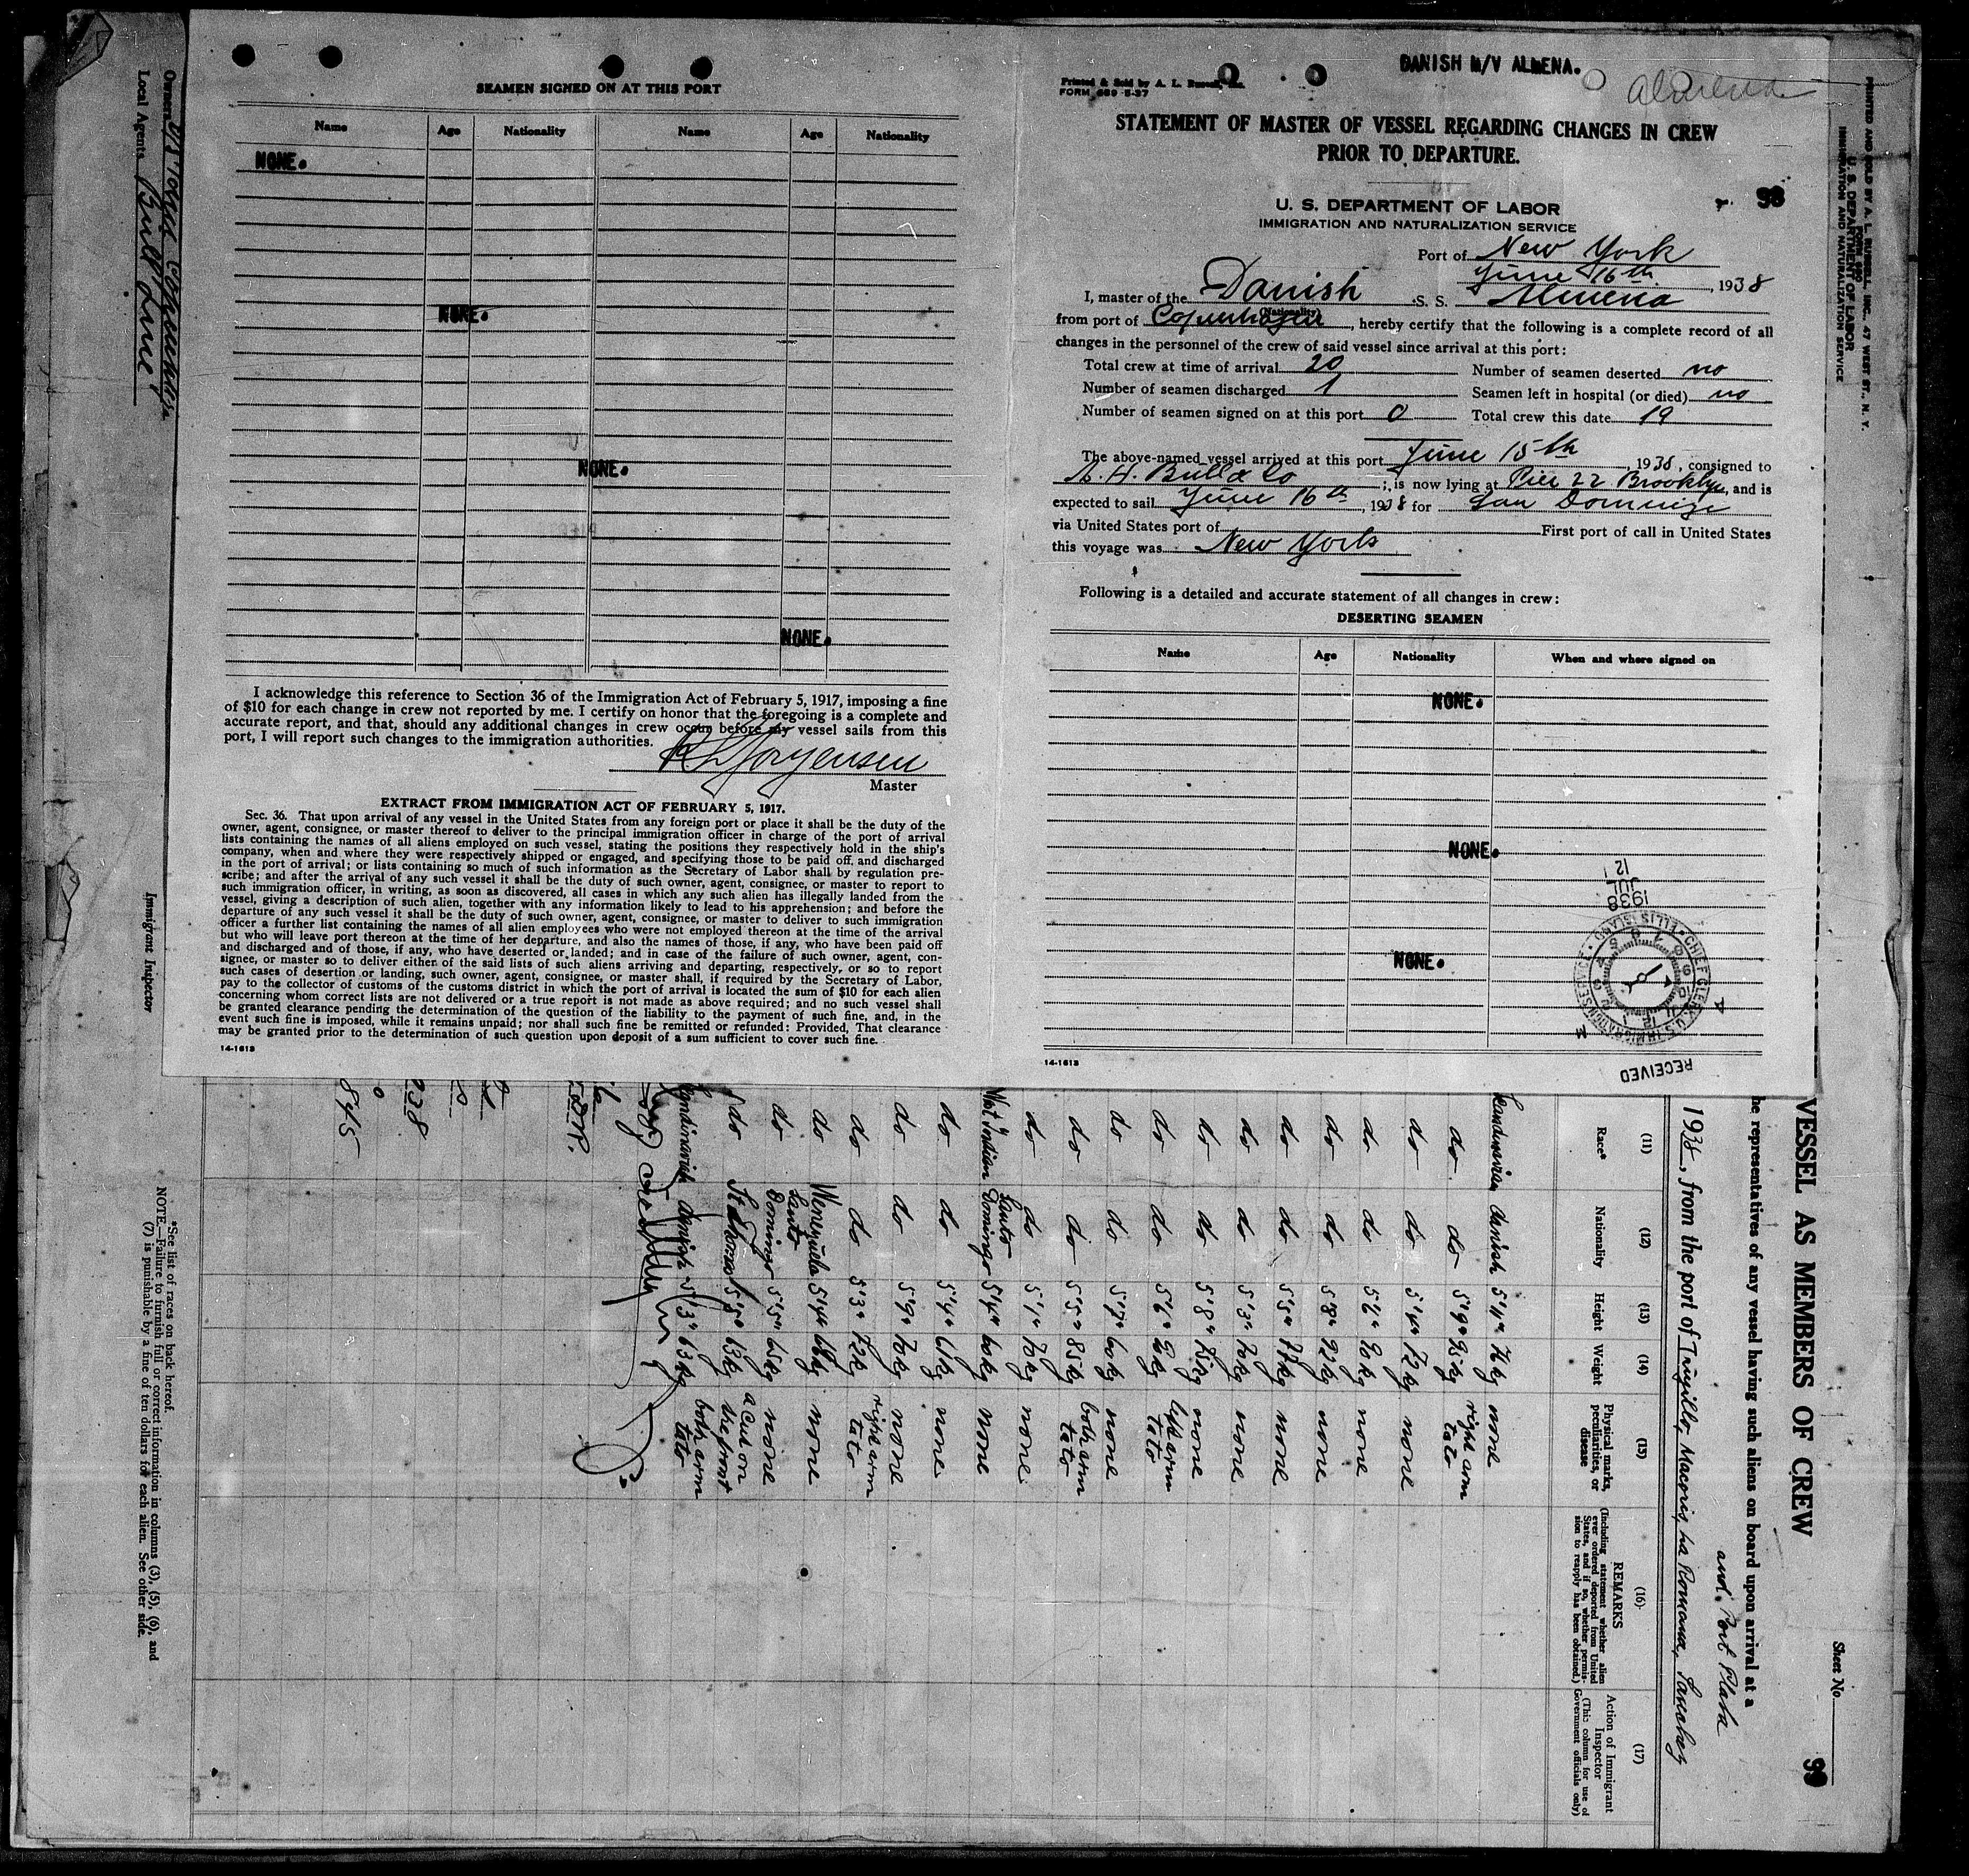 SEAMEN SIGNED ON AT THIS PORT
Name Age Nationality Name Age Nationality
NONE.
NONE.
NONE.
NONE.
I acknowledge this reference to Section 36 of the Immigration Act of February 5, 1917, imposing a fine
of $10 for each change in crew not reported by me. I certify on honor that the foregoing is a complete and
accurate report, and that, should any additional changes in crew occur before my vessel sails from this
port, I will report such changes to the immigration authorities.
Jorgensen
Master
EXTRACT FROM IMMIGRATION ACT OF FEBRUARY 5, 1917.
Sec. 36. That upon arrival of any vessel in the United States from any foreign port or place it shall be the duty of the
owner, agent, consignee, or master thereof to deliver to the principal immigration officer in charge of the port of arrival
lists containing the names of all aliens employed on such vessel, stating the positions they respectively hold in the ship's
company, when and where they were respectively shipped or engaged, and specifying those to be paid off and discharged
in the port of arrival; or lists containing so much of such information as the Secretary of Labor shall by regulation pre-
scribe; and after the arrival of any such vessel it shall be the duty of such owner, agent, consignee, or master to report to
such immigration officer, in writing, as soon as discovered, all cases in which any such alien has illegally landed from the
vessel, giving a description of such alien, together with any information likely to lead to his apprehension; and before the
departure of any such vessel it shall be the duty of such owner, agent, consignee, or master to deliver to such immigration
officer a further list containing the names of all alien employees who were not employed thereon at the time of the arrival
but who will leave port thereon at the time of her departure, and also the names of those, if any, who have been paid off
and discharged and of those, if any, who have deserted or landed; and in case of the failure of such owner, agent, con-
signee, or master so to deliver either of the said lists of such aliens arriving and departing, respectively, or so to report
such cases of desertion or landing, such owner, agent, consignee, or master shall, if required by the Secretary of Labor,
pay to the collector of customs of the customs district in which the port of arrival is located the sum of $10 for each alien
concerning whom correct lists are not delivered or a true report is not made as above required; and no such vessel shall
be granted clearance pending the determination of the question of the liability to the payment of such fine, and, in the
event such fine is imposed, while it remains unpaid; nor shall such fine be remitted or refunded: Provided, That clearance
may be granted prior to the determination of such question upon deposit of a sum sufficient to cover such fine.
14-1613
DANISH M/V ALMENA.
Almena
Printed & Sold by A. L. Russell, Inc.
FORM 689 5-37
STATEMENT OF MASTER OF VESSEL REGARDING CHANGES IN CREW
PRIOR TO DEPARTURE.
98
U. S. DEPARTMENT OF LABOR
IMMIGRATION AND NATURALIZATION SERVICE
Port of New York
June 16th, 1938
I, master of the Danish S. S. Almena
(Nationality)
from port of Copenhagen, hereby certify that the following is a complete record of all
changes in the personnel of the crew of said vessel since arrival at this port:
Total crew at time of arrival 20 Number of seamen deserted no
Number of seamen discharged 1 Seamen left in hospital (or died) no
Number of seamen signed on at this port 0 Total crew this date 19
The above-named vessel arrived at this port June 15th, 1938, consigned to
A. H. Bull & Co; is now lying at Pier 22 Brooklyn, and is
expected to sail June 16th, 1938 for San Domingo
via United States port of First port of call in United States
this voyage was New York
Following is a detailed and accurate statement of all changes in crew:
DESERTING SEAMEN
Name Age Nationality When and where signed on
NONE.
NONE.
NONE.
14-1613
RECEIVED
CHIEF CLERK U.S. IMMIGRATION SERVICE ELLIS ISLAND
1938
JUL
12
PRINTED AND SOLD BY A. L. RUSSELL, INC., 47 WEST ST., N. Y.
FORM 680
U. S. DEPARTMENT OF LABOR
IMMIGRATION AND NATURALIZATION SERVICE
Sheet No.
98
VESSEL AS MEMBERS OF CREW
he representatives of any vessel having such aliens on board upon arrival at a
and Port Plata
1938, from the port of Trujillo, Macoris, La Romana, Sanchez
(11) (12) (13) (14) (15) (16) (17)
Race* Nationality Height Weight Physical marks, peculiarities, or disease
REMARKS
(Including statement whether alien ever ordered deported from United States, and if so, whether permission to reapply has been obtained.)
Action of Immigrant Inspector
(This column for use of Government officials only)
Scandinavian danish 5'11" 76kg none
do do 5'9" 95kg right arm tato
do do 5'4" 72kg none
do do 5'6" 80kg none
do do 5'8" 92kg none
do do 5'5" 87kg none
do do 5'3" 70kg none
do do 5'8" 75kg none
do do 5'6" 80kg left arm tato
do do 5'7" 60kg none
do do 5'5" 85kg both arm tato
do do 5'1" 70kg none
West Indian Santo Domingo 5'4" 60kg none
do do 5'4" 61kg none
do do 5'9" 70kg none
do do 5'3" 72kg right arm tato
do Venezuela 5'4" 68kg none
do Santo Domingo 5'5" 65kg none
do St Thomas 5'5" 63kg a cut on the front
Skandinavish danish 5'3" 63kg both arm tato
845
Owners Copenhagen
Local Agents Bull Line
Immigrant Inspector
*See list of races on back hereof.
NOTE.—Failure to furnish full or correct information in columns (3), (5), (6), and
(7) is punishable by a fine of ten dollars for each alien. See other side.